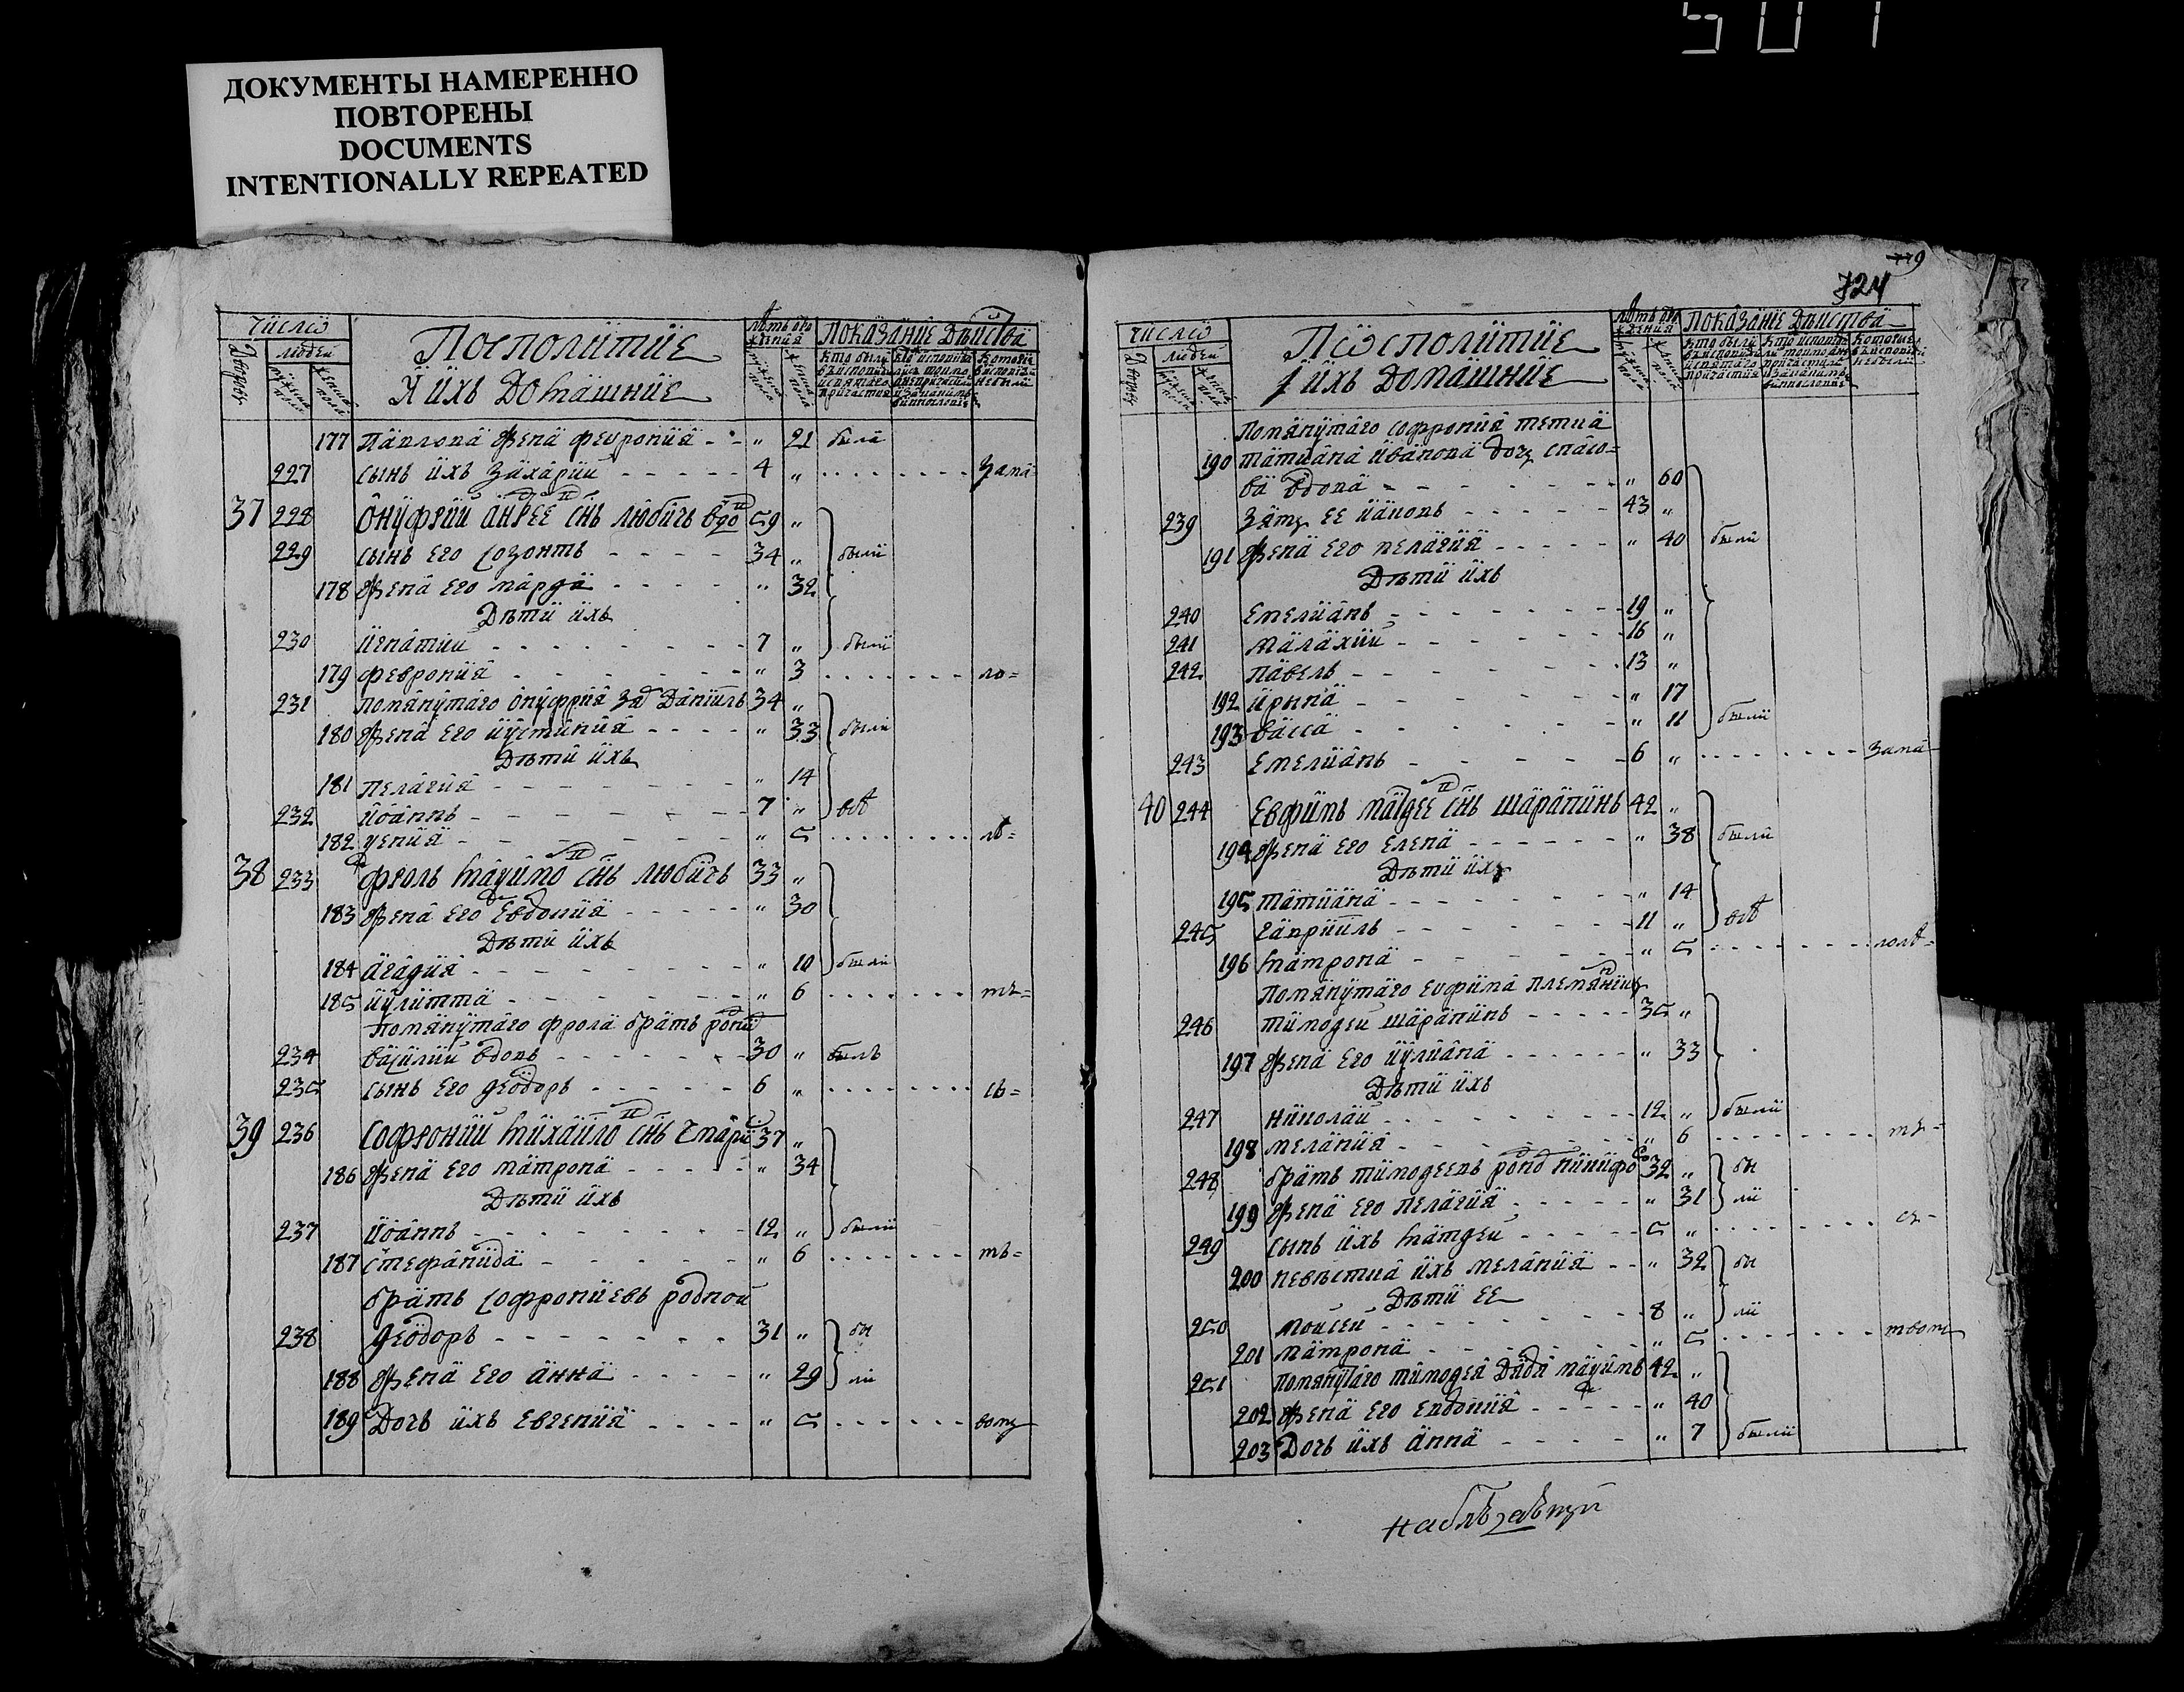 ДОКУМЕНТЫ НАМЕРЕННО
ПОВТОРЕНЫ
DOCUMENTS
INTENTIONALLY REPEATED
число
людей
Посполитие
И ихъ Домашние
Показание Действа
177 Павлова жена феврония - - " 21 была
227 сынъ ихъ Захарий - - - - 4 " . . . . . . за мa=
37 228 Онуфрий Андрее снъ любичъ вдо 59 "
229 сынъ его созонтъ - - - - 34 " были
178 жена его марфа - - - - " 32
Дѣти ихъ
230 Игнатий - - - - 7 " были
179 феврония - - - - " 3 . . . . . . ло=
231 помянутаго онуфрия за Даниилъ 34 "
180 жена его иустиния - - - - " 33 были
Дѣти ихъ
181 пелагия - - - - " 14
232 Иоаннъ - - - - 7 "
182 - - - - " 5 . . . . . .
38 233 фролъ Маѯимо снъ любичъ 33 "
183 жена его Евдокия - - - - " 30
Дѣти ихъ
184 Агафия - - - - " 10 были
185 иулитта - - - - " 6 . . . . . . тъ=
помянутаго фрола братъ родни
234 василий вдовъ - - - - 30 " былъ
235 сынъ его Ѳеодоръ - - - - 6 " . . . . . . съ=
39 236 Софроний Михайло снъ 37 "
186 жена его матрона - - - - " 34
Дѣти ихъ
237 Иоаннъ - - - - 12 " были
187 стефанида - - - - " 6 . . . . . . тъ=
братъ софрониевъ родной
238 Ѳеодоръ - - - - 31 " бы
188 жена его анна - - - - " 29 ли
189 Дочь ихъ евгения - - - - " 5 . . . . . .
724
число
людей
Посполитие
И ихъ Домашние
Показание Действа
помянутаго софрония тетка
190 татиана иванова дочъ спасо=
ва вдова - - - - " 60
239 зять ее иаковъ - - - - 43 "
191 жена его пелагия - - - - " 40 были
Дѣти ихъ
240 емелианъ - - - - 19 "
241 малахий - - - - 16 "
242 павелъ - - - - 13 "
192 ирина - - - - " 17
193 васса - - - - " 11 были
243 емелианъ - - - - 6 " . . . . . . за мa
40 244 Евфимъ Матфее снъ шарапинъ 42 "
194 жена его елена - - - - " 38 были
Дѣти ихъ
195 татиана - - - - " 14
245 гавриилъ - - - - 11 "
196 матрона - - - - " 5 . . . . . .
помянутаго евфима племянникъ
246 тимофей шарапинъ - - - - 35 "
197 жена его иулиана - - - - " 33
Дѣти ихъ
247 николай - - - - 12 " были
198 мелания - - - - " 6 . . . . . . тъ-
248 братъ тимофеевъ родн никифо 32 " бы
199 жена его пелагия - - - - " 31 ли
249 сынъ ихъ матфей - - - - 5 " . . . . . . съ-
200 невѣстка ихъ мелания - - " 32 бы
Дѣти ее
250 моисей - - - - 8 " ли
201 матрона - - - - " 5 . . . . . .
251 помянутаго тимофея дядя маѯимъ 42 "
202 жена его евдокия - - - - " 40
203 Дочъ ихъ анна - - - - " 7 были